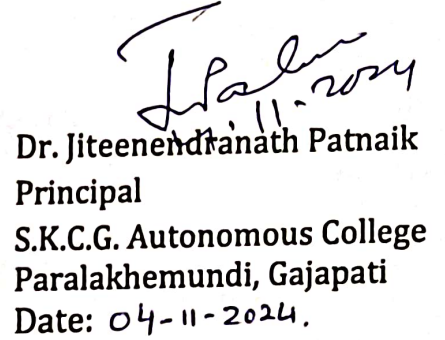 11-2024
Dr. Jiteenendranath Patnaik
Principal
S.K.C.G. Autonomous College
Paralakhemundi, Gajapati
Date: 04-11-2024.